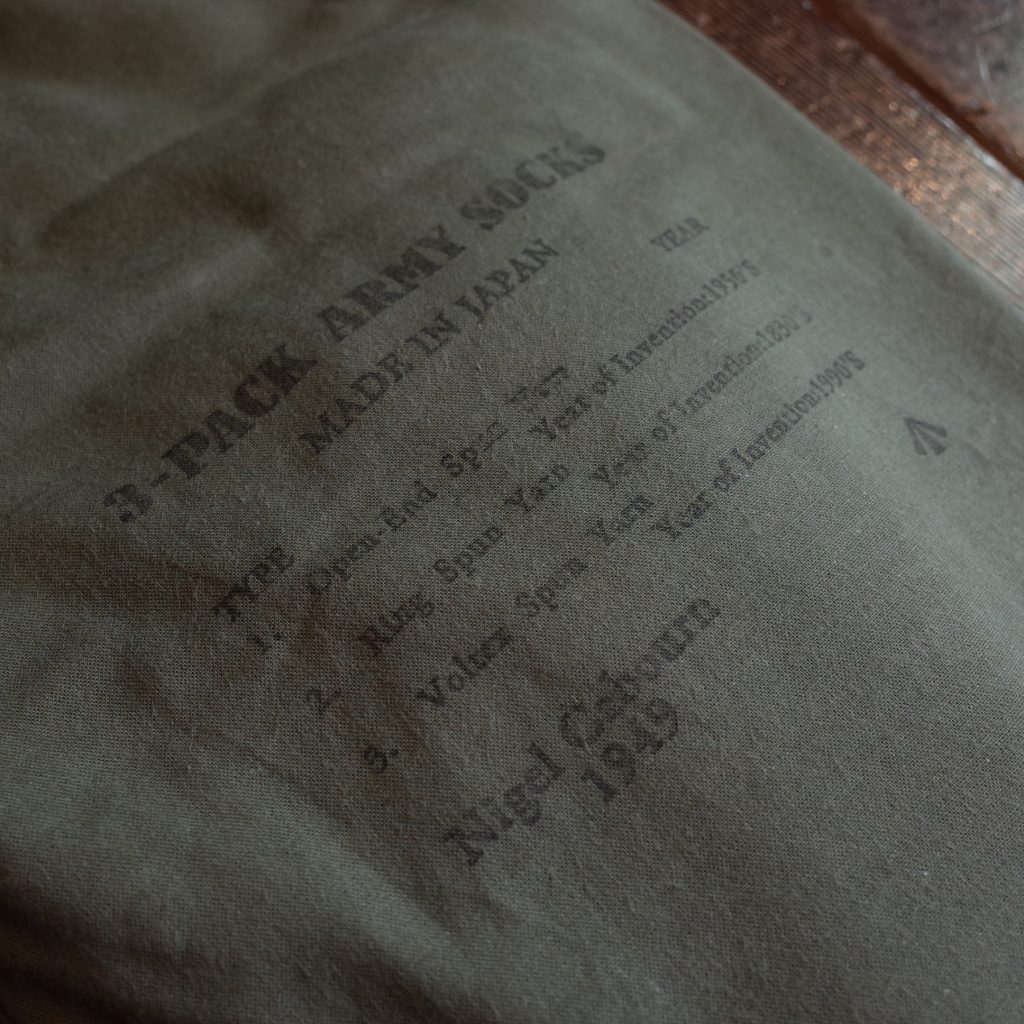 3-PACK ARMY SOCKS
MADE IN JAPAN
TYPE YEAR
1. Open-End Spun Year of Invention:1950'S
2. Ring Spun Yarn Year of Invention:1830'S
3. Voltex Spun Yarn Year of Invention:1990'S
Nigel Cabourn
1949